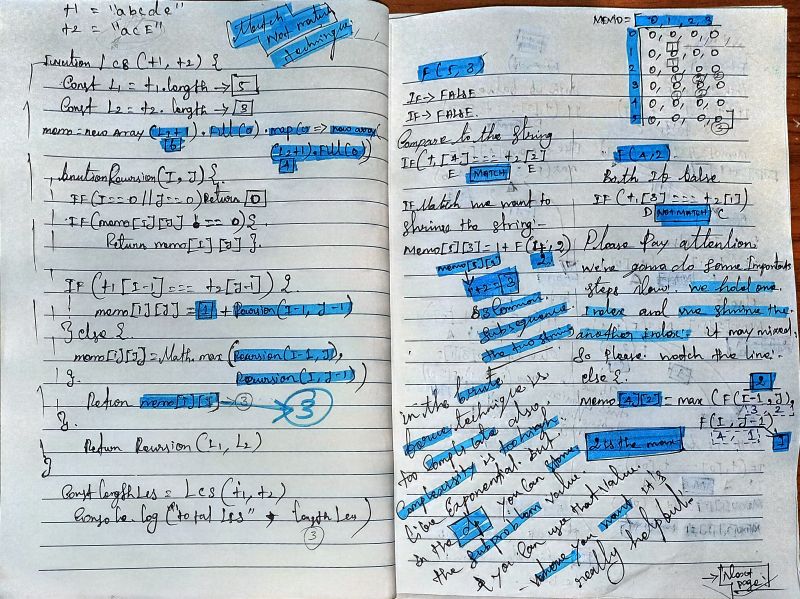 t1 = "abcde"
t2 = "ace"
Match
Not match
technique.
function Lcs (t1, t2) {
Const L1 = t1.length → 5
Const L2 = t2.length → 3
memo = new Array (L1+1).Fill(0).map(() => new array
6
(L2+1).Fill(0))
4
function Recursion(I, J) {
IF (I==0 || J==0) Return 0
IF (memo[I][J] != 0) {
Return memo[I][J] }.
IF (t1[I-1] === t2[J-1]) {
memo[I][J] = 1 + Recursion(I-1, J-1)
} else {
memo[I][J] = Math.max (Recursion(I-1, J),
}.
Recursion(I, J-1)
Return memo[I][J] → 3
3
}.
Return Recursion (L1, L2)
}
Const lengthLcs = Lcs (t1, t2)
Console.log ("total Lcs" + lengthLcs)
3
MEMO = 0, 1, 2, 3
0 0, 0, 0, 0
1 0, 0, 0
2 0, 0, 0, 0
3 0, 0, 0, 0
4 0, 0, 0, 0
5 0, 0, 0
3
F(5,3)
IF → FALSE
IF → FALSE.
Compare to the String
IF (t1[4] === t2[2]
E MATCH E
IF Match we want to
shrines the string:-
Memo[5][3] = 1 + F(4, 2)
memo[5][3] 2
1+2 = 3
3 is Common
Subsequence
the two string
F(4,2)
Both IF false
IF (t1[3] === t2[1])
D NOT MATCH C
Please Pay attention
we're gonna do some Important
steps Now. we hold one
Index and we shrine the
another index. it may mixed,
So please notch the line.
else {. 2
memo[4][2] = max (F(I-1, J),
3 2
F(I, J-1)
4, 1
2 is the max 1
in the brute
force technique is
too Complicate also,
Complexcity is too high
like Exponential. but
in the dp you can store
the subproblem value.
& you can use that value.
- where you want it's
really helpful.
Next
page.